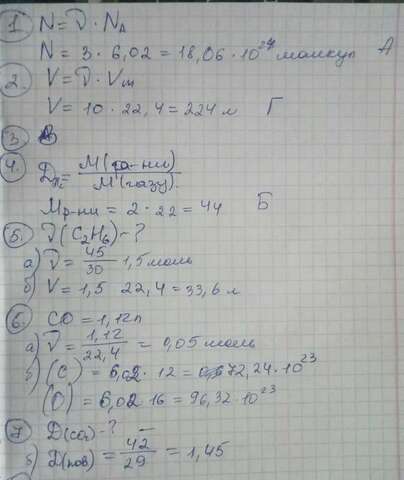 1 N = ν · Nₐ
N = 3 · 6,02 = 18,06 · 10²³ молкул А
2. V = ν · Vm
V = 10 · 22,4 = 224 л Г
3 В
4. M(ра-ни)
D = M(газу).
Мр-ни = 2 · 22 = 44 Б
5. ν(C₂H₆) - ?
а) ν = 45/30 1,5 моль
б) V = 1,5 22,4 = 33,6 л
6. CO = 1,12л
а) ν = 1,12/22,4 = 0,05 моль
б) (C) = 6,02 · 12 = 72,24 · 10²³
(O) = 6,02 16 = 96,32 · 10²³
7 D(co₂) - ? –
б) D(пов) = 42/29 = 1,45